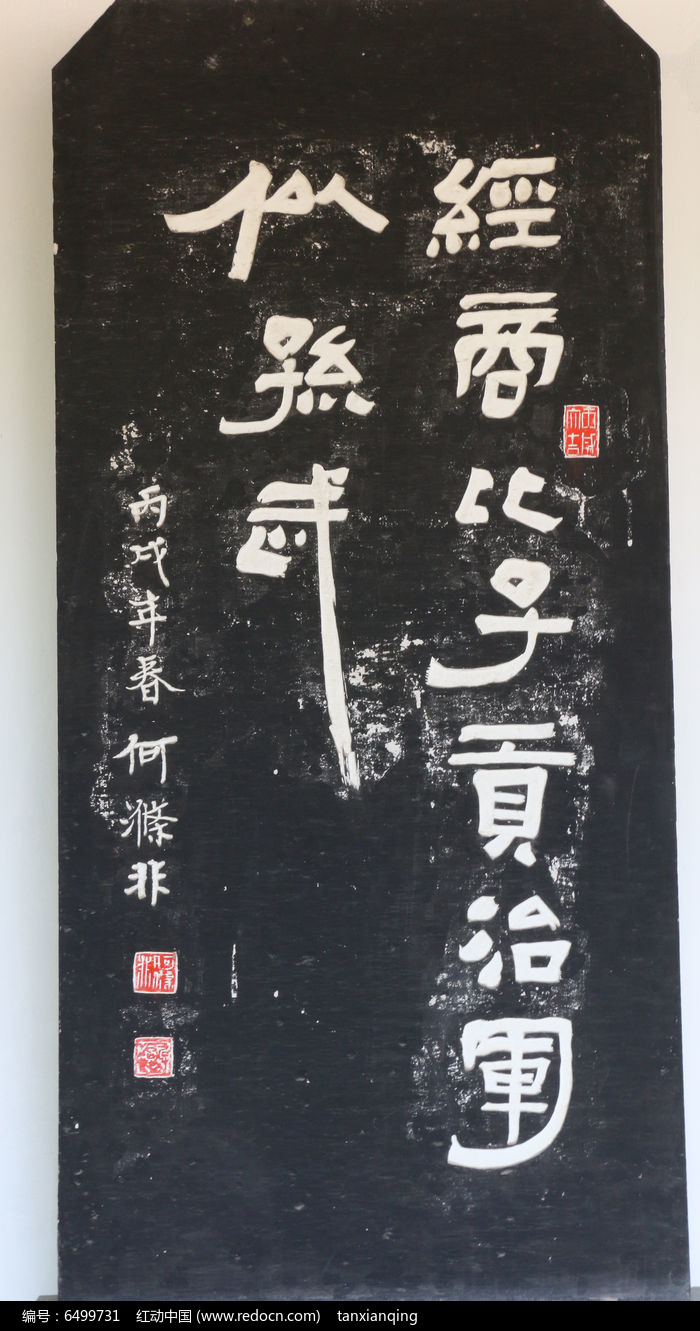 經商比子貢治軍
似孫武
丙戌年春何滌非
编号：6499731 红动中国 (www.redocn.com) tanxianqing